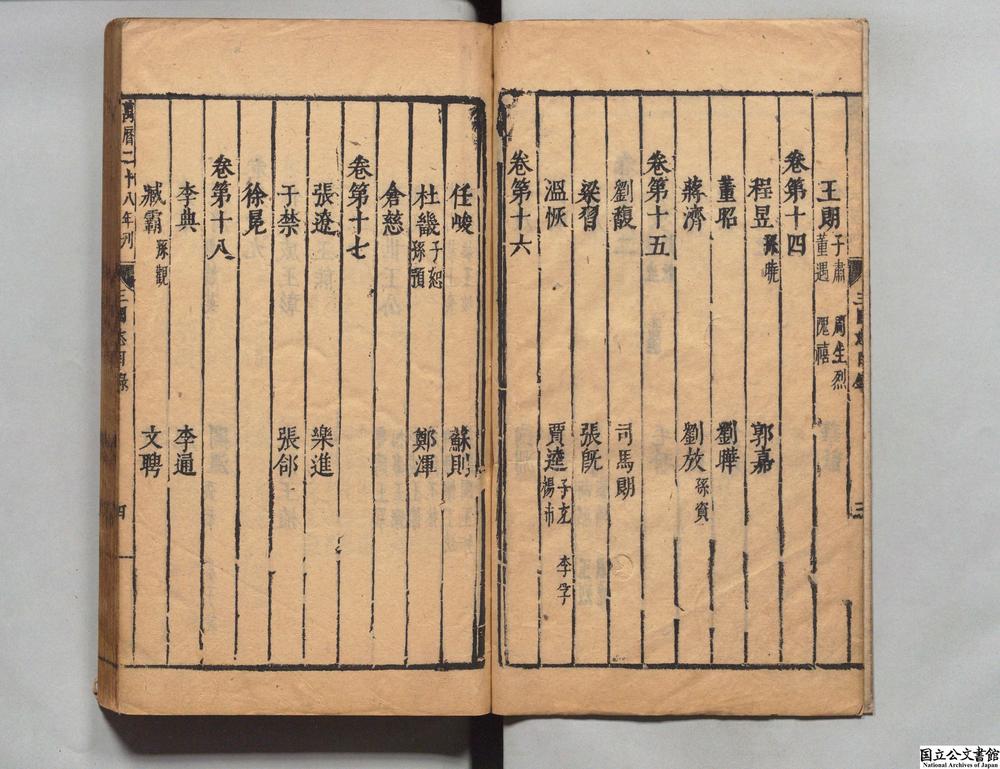 王朗 子肅 董遇 周生烈 隗禧
卷第十四
程昱 孫曉 郭嘉
董昭 劉曄
蔣濟 劉放 孫資
卷第十五
劉馥 司馬朗
梁習 張旣
溫恢 賈逵 子充 楊沛 李孚
卷第十六
三國志目錄 三
任峻 蘇則
杜畿 子恕 孫預 鄭渾
倉慈
卷第十七
張遼 樂進
于禁 張郃
徐晃
卷第十八
李典 李通
臧霸 孫觀 文聘
萬曆二十八年刊
三國志目錄 四
国立公文書館
National Archives of Japan